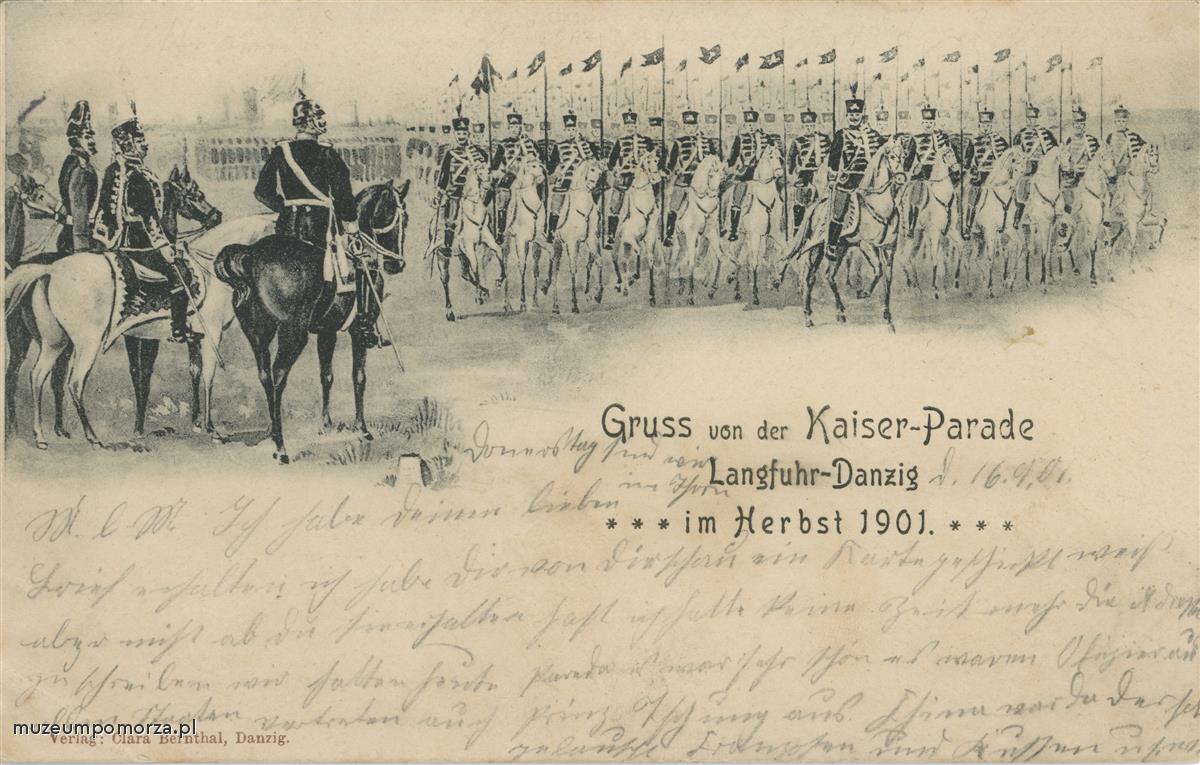 Gruss von der Kaiser-Parade
Langfuhr-Danzig d. 16.9.01.
* * * im Herbst 1901. * * *
Donerstag sind wir
in Thorn
M. l. M. Ich habe deinen lieben
Brief erhalten ich habe Dir von Dirschau ein Karte geschickt weiß
aber nicht ob du sie erhalten hast ich hatte keine Zeit mehr die
zu schreiben wir hatten heute Parade es war sehr schön es waren Ofizier
Staaten vertreten auch Prinz Tschung aus China war da
Franzosen und Russen usw
muzeumpomorza.pl
Verlag: Clara Bernthal, Danzig.